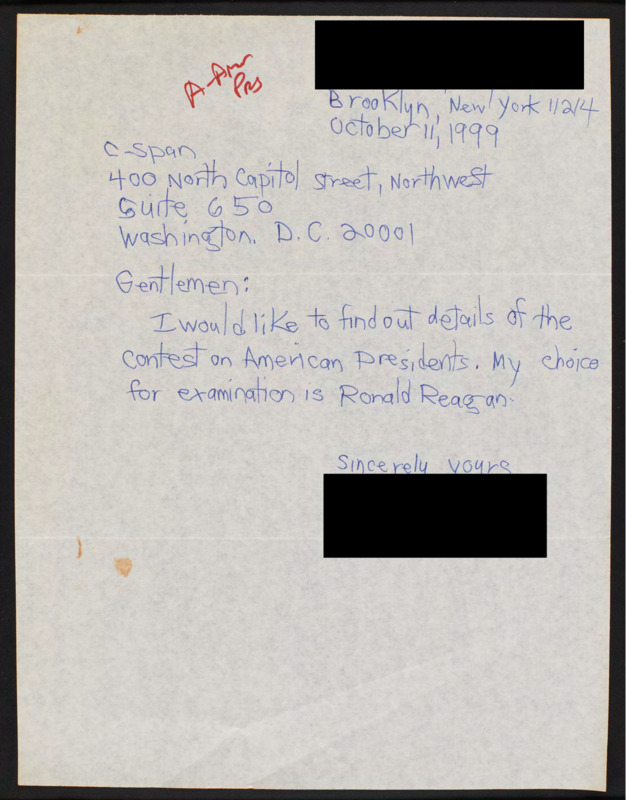 A-Amer
Prs
Brooklyn, New York 11214
October 11, 1999
C-Span
400 North Capitol Street, Northwest
Suite 650
Washington. D.C. 20001
Gentlemen:
I would like to find out details of the
contest on American Presidents. My choice
for examination is Ronald Reagan.
Sincerely yours